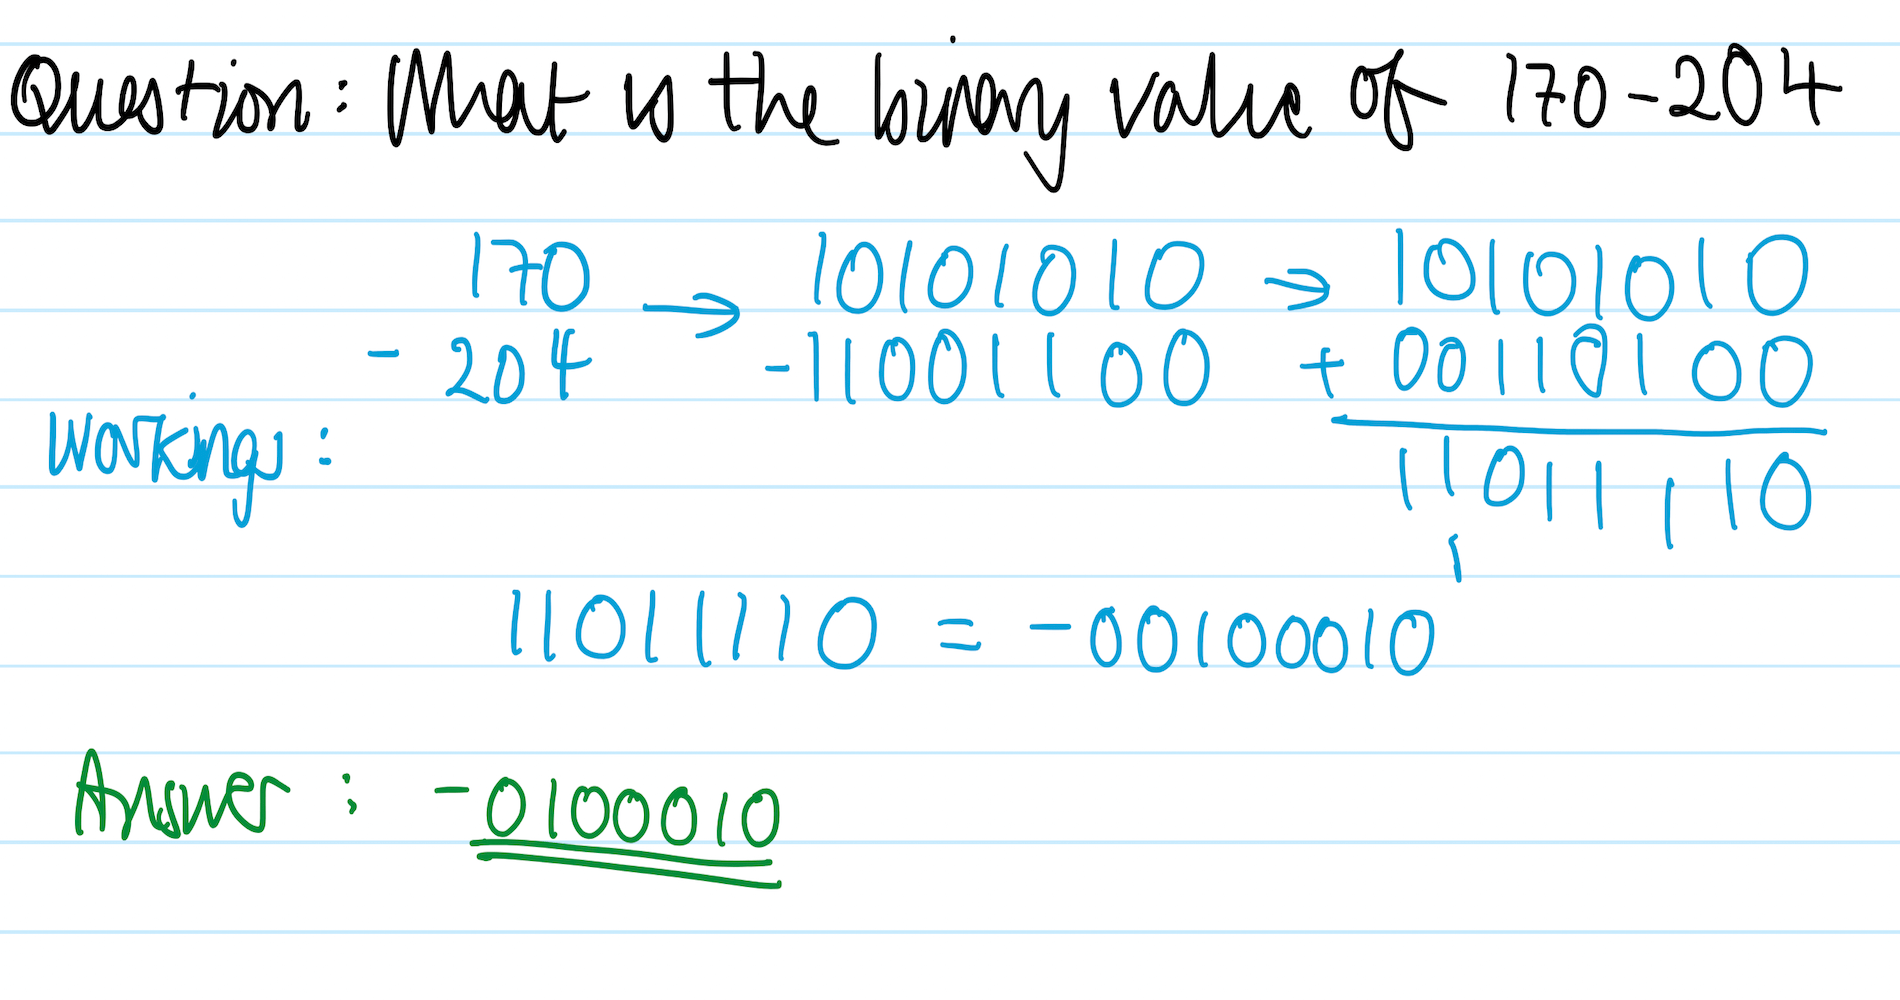 Question: What is the binary value of 170-204
170 → 10101010 → 10101010
- 204 -11001100 + 00110100
Workings:
11011110
1
11011110 = -00100010
Answer: -0100010